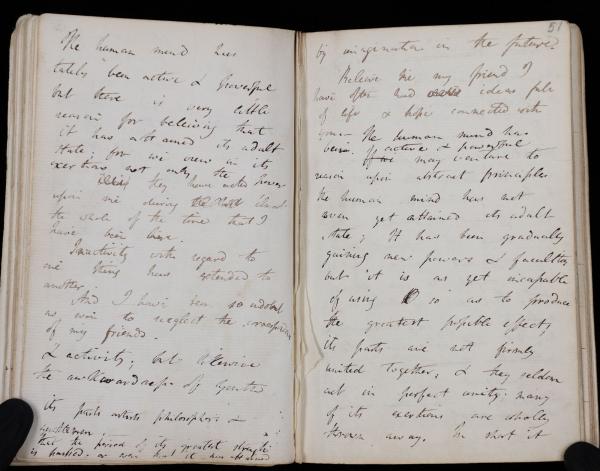 The human mind has
lately been active & powerful
but there is very little
reason for believing that
it has attained its adult
state; for we view in its
exertions not only the
they have acted
upon me during
the whole of the time that I
have been here.
Inactivity with regard to
one thing has extended to
another.
And I have been so indolent
as even to neglect the
of my friends.
& activity; but likewise
the awkwardness of youth
its parts artists philosophers &
gentlemen.
that the period of its greatest strength
is passed. or even that it has attained
51
by imagination in the future?
Believe me my friend I
have often had ideas full
of life & hope connected with
your The human mind has
been active & powerful
If we may venture to
reason upon abstract principles
the human mind has not
even yet attained its adult
state; It has been gradually
gaining new powers & faculties
but it is as yet incapable
of using so as to produce
the greatest possible effect,
its parts are not firmly
united together, & they seldom
act in perfect unity; many
of its exertions are wholly
thrown away. In short it